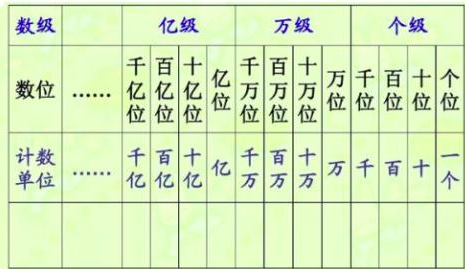 数级 亿级 万级 个级
数位 …… 千亿位 百亿位 十亿位 亿位 千万位 百万位 十万位 万位 千位 百位 十位 个位
计数单位 …… 千亿 百亿 十亿 亿 千万 百万 十万 万 千 百 十 一个